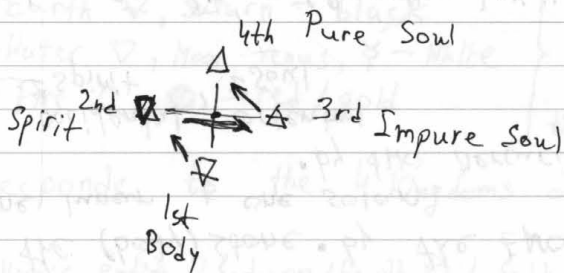 4th Pure Soul
Spirit 2nd 3rd Impure Soul
1st
Body